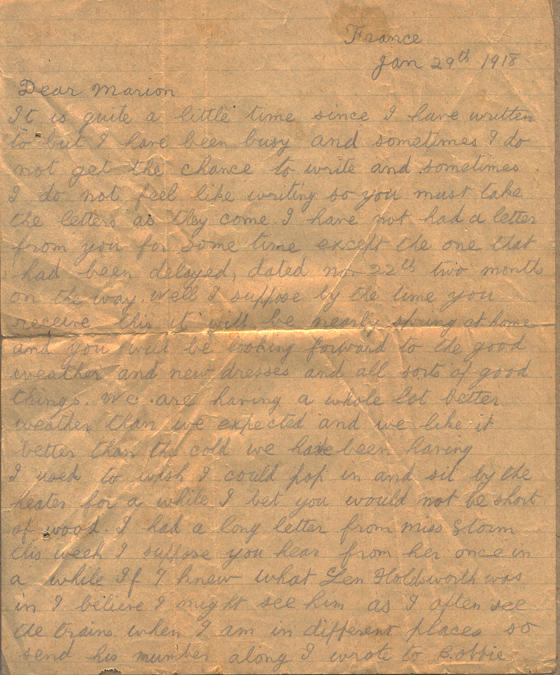 France
Jan 29th 1918
Dear Marion
It is quite a little time since I have written
to but I have been busy and sometimes I do
not get the chance to write and sometimes
I do not feel like writing so you must take
the letters as they come I have not had a letter
from you for some time except the one that
had been delayed, dated nov 22th two month
on the way. Well I suppose by the time you
receive this it will be nearly spring at home
and you will be looking forward to the good
weather and new dresses and all sorts of good
things. We are having a whole lot better
weather than we expected and we like it
better than the cold we have been having
I used to wish I could pop in and sit by the
heater for a while I bet you would not be short
of wood. I had a long letter from miss Storm
this week I suppose you hear from her once in
a while If I knew what Len Holdsworth was
in I believe I might see him as I often see
the trains when I am in different places so
send his number along I wrote to Bobbie